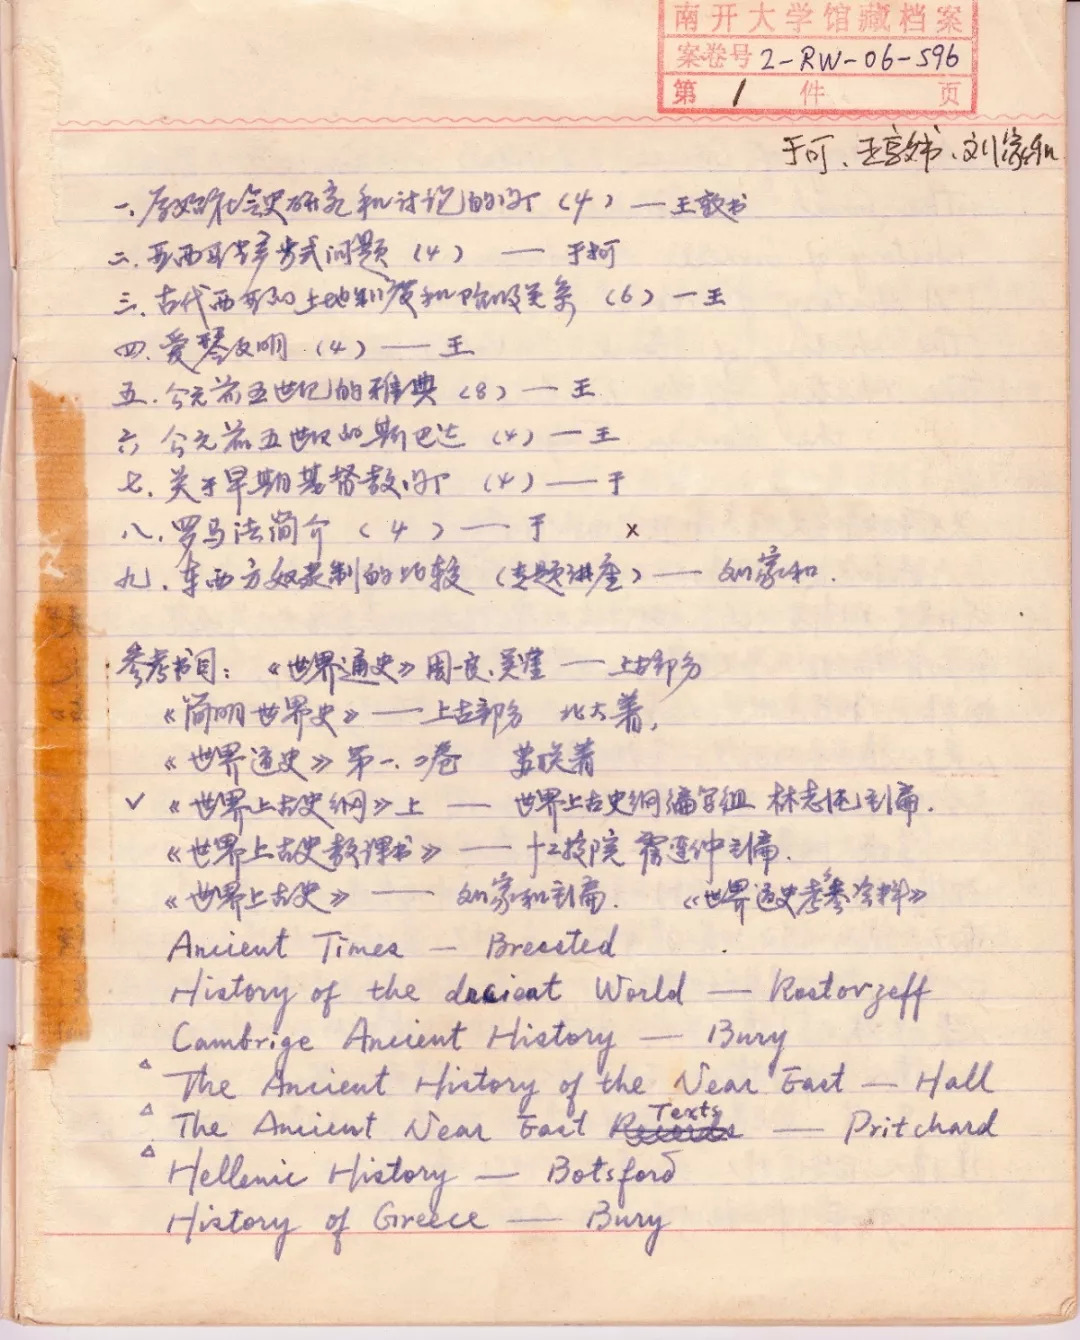 南开大学馆藏档案
案卷号 2-RW-06-596
第 1 件 页
于可、王敦书、刘家和
一、原始社会史研究和讨论的问丁（4）— 王敦书
二、亚西亚生产方式问题（4） — 于可
三、古代西亚的土地制度和阶级关系（6）— 王
四、爱琴文明（4）— 王
五、公元前五世纪的雅典（8）— 王
六、公元前五世纪的斯巴达（4）— 王
七、关于早期基督教问丁（4）— 于
八、罗马法简介（4）— 于 x
九、东西方奴隶制的比较（专题讲座）— 刘家和.
参考书目：《世界通史》周一良、吴廑 — 上古部分
《简明世界史》— 上古部分 北大著,
《世界通史》第一、二卷 苏联著
✓《世界上古史纲》上 — 世界上古史纲编写组 林志纯主编.
《世界上古史教课书》— 十二校院 主编.
《世界上古史》— 刘家和主编. 《世界通史参考资料》
Ancient Times — Breasted
History of the Ancient World — Rostovzeff
Cambrige Ancient History — Bury
△ The Ancient History of the Near East — Hall
△ The Ancient Near East Texts — Pritchard
△ Hellenic History — Botsford
History of Greece — Bury